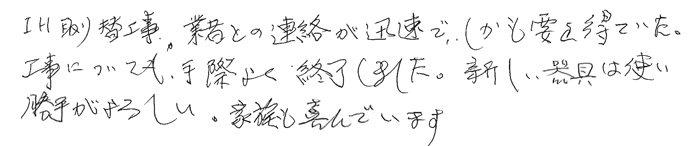 IH取り替工事。業者との連絡が迅速で、しかも要を得ていた。
工事についても、手際よく終了しました。新しい器具は使い
勝手がよろしい。家族も喜んでいます